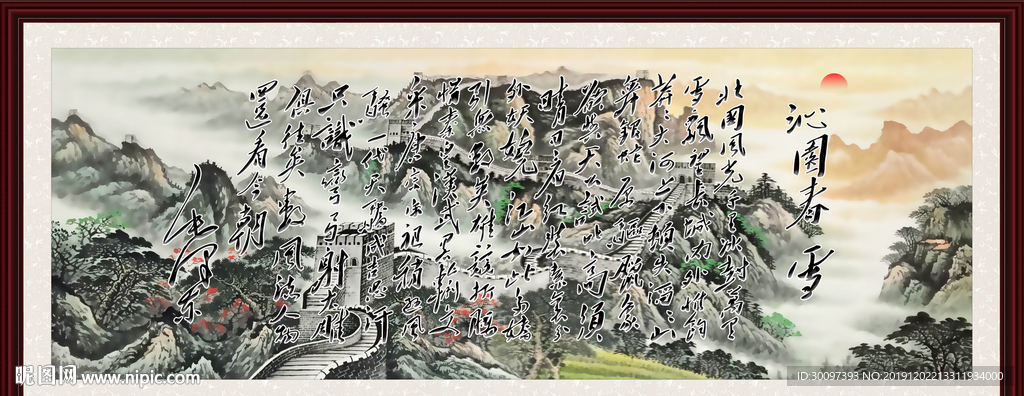 沁園春 雪
北国風光千里冰封萬里
雪飄望長城内外惟餘
莽莽大河上下頓失滔滔山
舞銀蛇原馳臘象
欲與天公試比高須
晴日看紅裝素裹分
外妖嬈江山如此多嬌
引無數英雄競折腰
惜秦皇漢武略輸文
采唐宗宋祖稍遜風
騷一代天驕成吉思汗
只識彎弓射大雕
俱往矣數風流人物
還看今朝
毛澤東
昵图网 www.nipic.com
ID:30097393 NO:20191202213311934000